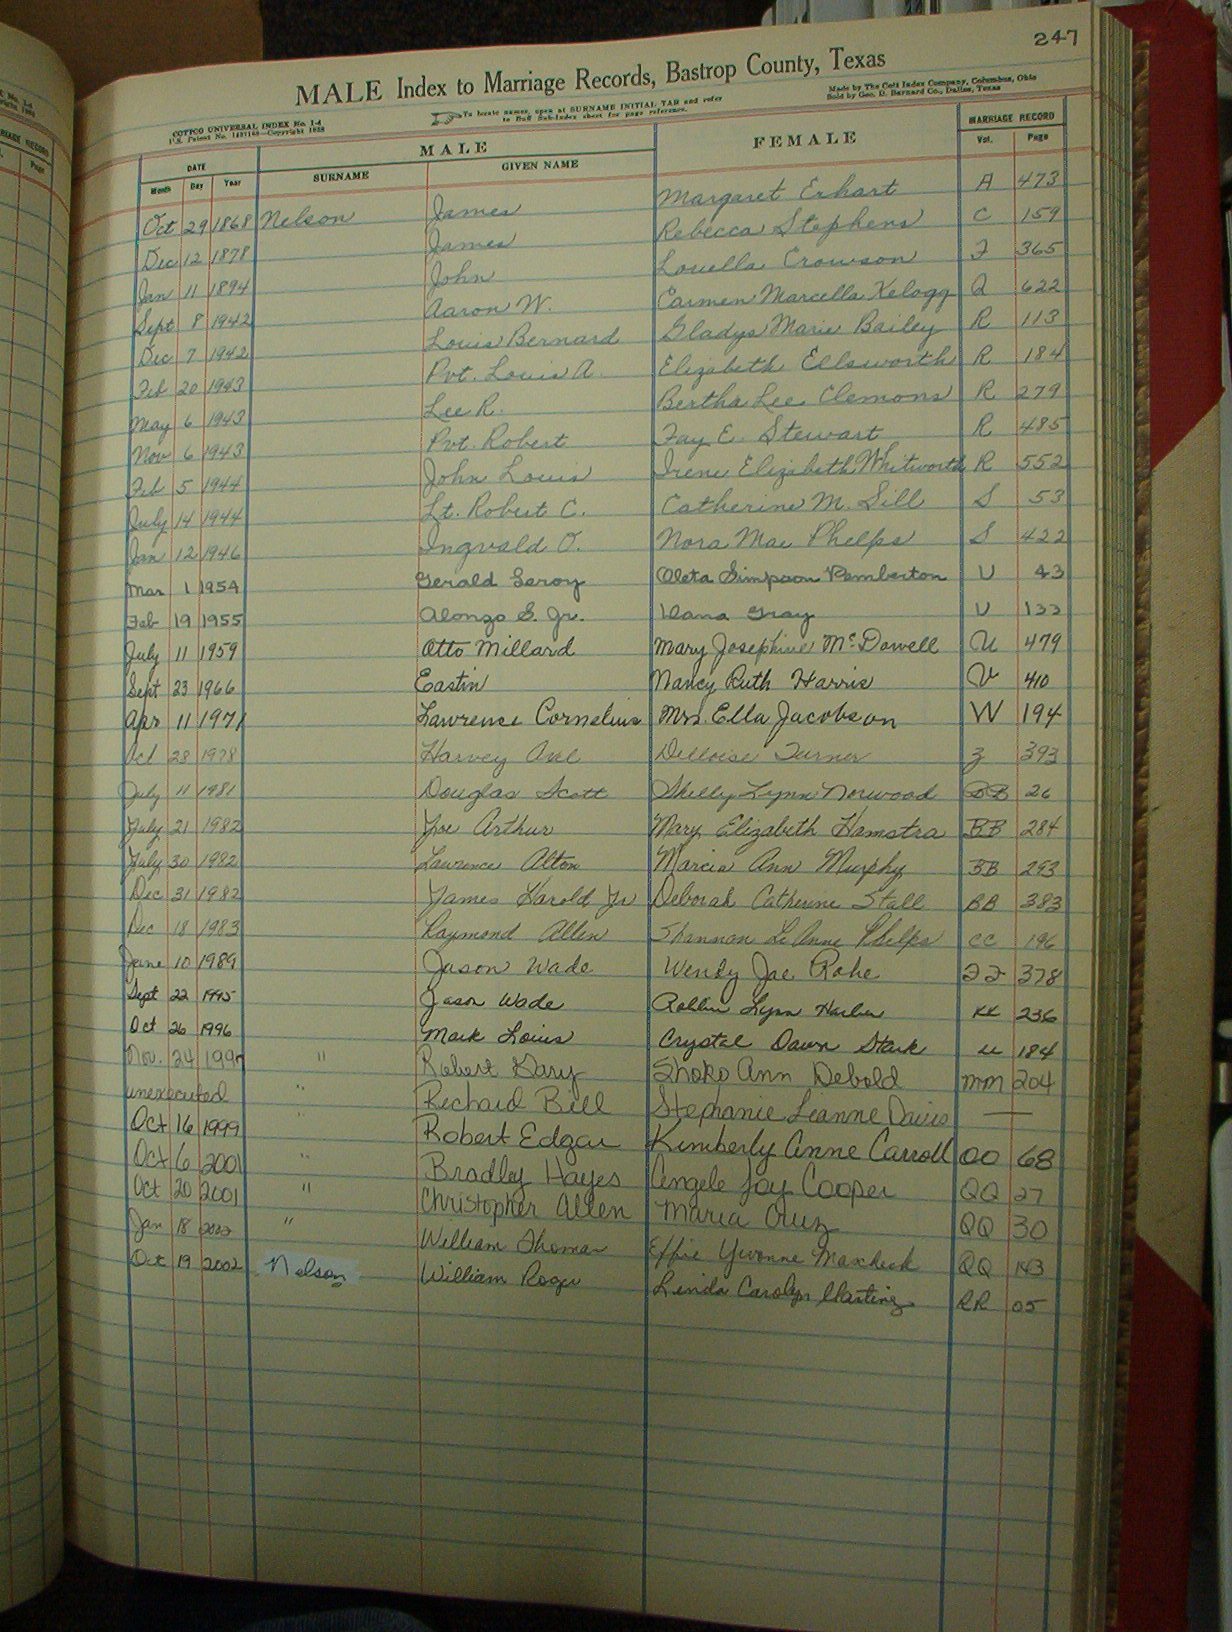 247
MALE Index to Marriage Records, Bastrop County, Texas
COTTCO UNIVERSAL INDEX No. 1-4
U.S. Patent No. 1497168—Copyright 1928
To locate names, open at SURNAME INITIAL TAB and refer
to Buff Sub-Index sheet for page reference.
Made by The Cott Index Company, Columbus, Ohio
Sold by Geo. D. Barnard Co., Dallas, Texas
DATE MALE FEMALE MARRIAGE RECORD
Month Day Year SURNAME GIVEN NAME Vol. Page
Oct 29 1868 Nelson James Margaret Erhart A 473
Dec 12 1878 James Rebecca Stephens C 159
Jan 11 1894 John Louella Crowson F 365
Sept 8 1942 Aaron W. Carmen Marcella Kelogg Q 622
Dec 7 1942 Louis Bernard Gladys Marie Bailey R 113
Feb 20 1943 Pvt. Louis A. Elizabeth Ellsworth R 184
May 6 1943 Lee R. Bertha Lee Clemons R 279
Nov 6 1943 Pvt. Robert Fay E. Stewart R 485
Feb 5 1944 John Louis Irene Elizabeth Whitworth R 552
July 14 1944 Lt. Robert C. Catherine M. Sill S 53
Jan 12 1946 Ingvald O. Nora Mae Phelps S 422
Mar 1 1954 Gerald Leroy Oleta Simpson Pemberton U 43
Feb 19 1955 Alonzo S. Jr. Gray U 133
July 11 1959 Otto Millard Mary Josephine McDowell U 479
Sept 23 1966 Eastin Nancy Ruth Harris V 410
Apr 11 1971 Lawrence Cornelius Mrs. Ella Jacobson W 194
Oct 28 1978 Harvey Axel Delloise Turner Z 393
July 11 1981 Douglas Scott Shelly Lynn Norwood BB 26
July 21 1982 Joe Arthur Mary Elizabeth Hamstra BB 284
July 30 1982 Lawrence Alton Marcia Ann Murphy BB 293
Dec 31 1982 James Harold Jr Deborah Catherine Stall BB 383
Dec 18 1983 Raymond Allen Shannon LeAnne Phelps CC 196
June 10 1989 Jason Wade Wendy Jae Rohe FF 378
Sept 22 1995 Jason Wade Robbin Lynn Harber KK 236
Oct 26 1996 Mark Louis Crystal Dawn Stark LL 184
Nov. 24 1997 " Robert Gary Ann Debold MM 204
unexecuted " Richard Bill Stephanie Leanne Davis —
Oct 16 1999 " Robert Edgar Kimberly Anne Carroll OO 68
Oct 6 2001 " Bradley Hayes Angele Joy Cooper QQ 27
Oct 20 2001 " Christopher Allen Maria Cruz QQ 30
Jan 18 2002 " William Thomas Effie Yvonne QQ 143
Oct 19 2002 Nelson William Roger Linda Carolyn RR 05